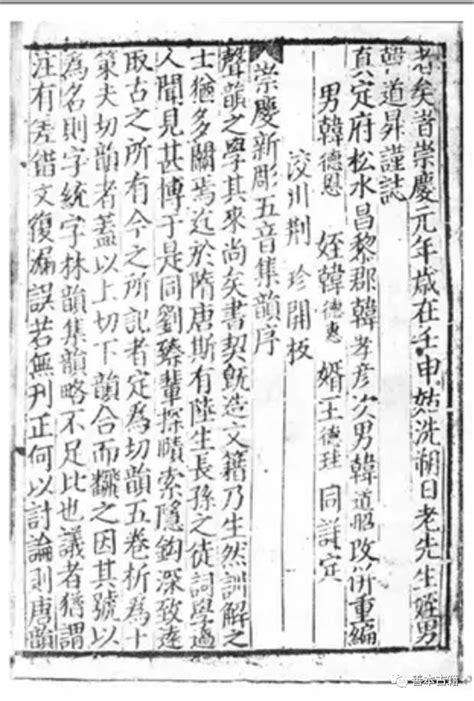 老矣者崇慶元年歲在壬申姑洗朔日老先生姪男
韓道昇謹誌
真定府松水昌黎郡韓孝彦次男韓道昭改併重編
男韓德恩 姪韓德惠 婿王德珪 同詳定
浚川荆 珍開板
崇慶新彫五音集韻序
聲韻之學其來尚矣書契旣造文籍乃生然訓解之
士猶多闕焉迄於隋唐斯有陸生長孫之徒詞學過
人聞見甚博于是同劉臻輩探賾索隱鈎深致遠
取古之所有今之所記者定為切韻五卷析為十
策夫切韻者盖以上切下韻合而翻之因其號以
為名則字統字林韻集韻略不足比也議者猶謂
注有差錯文復漏誤若無刊正何以討論則唐韻
善本古籍